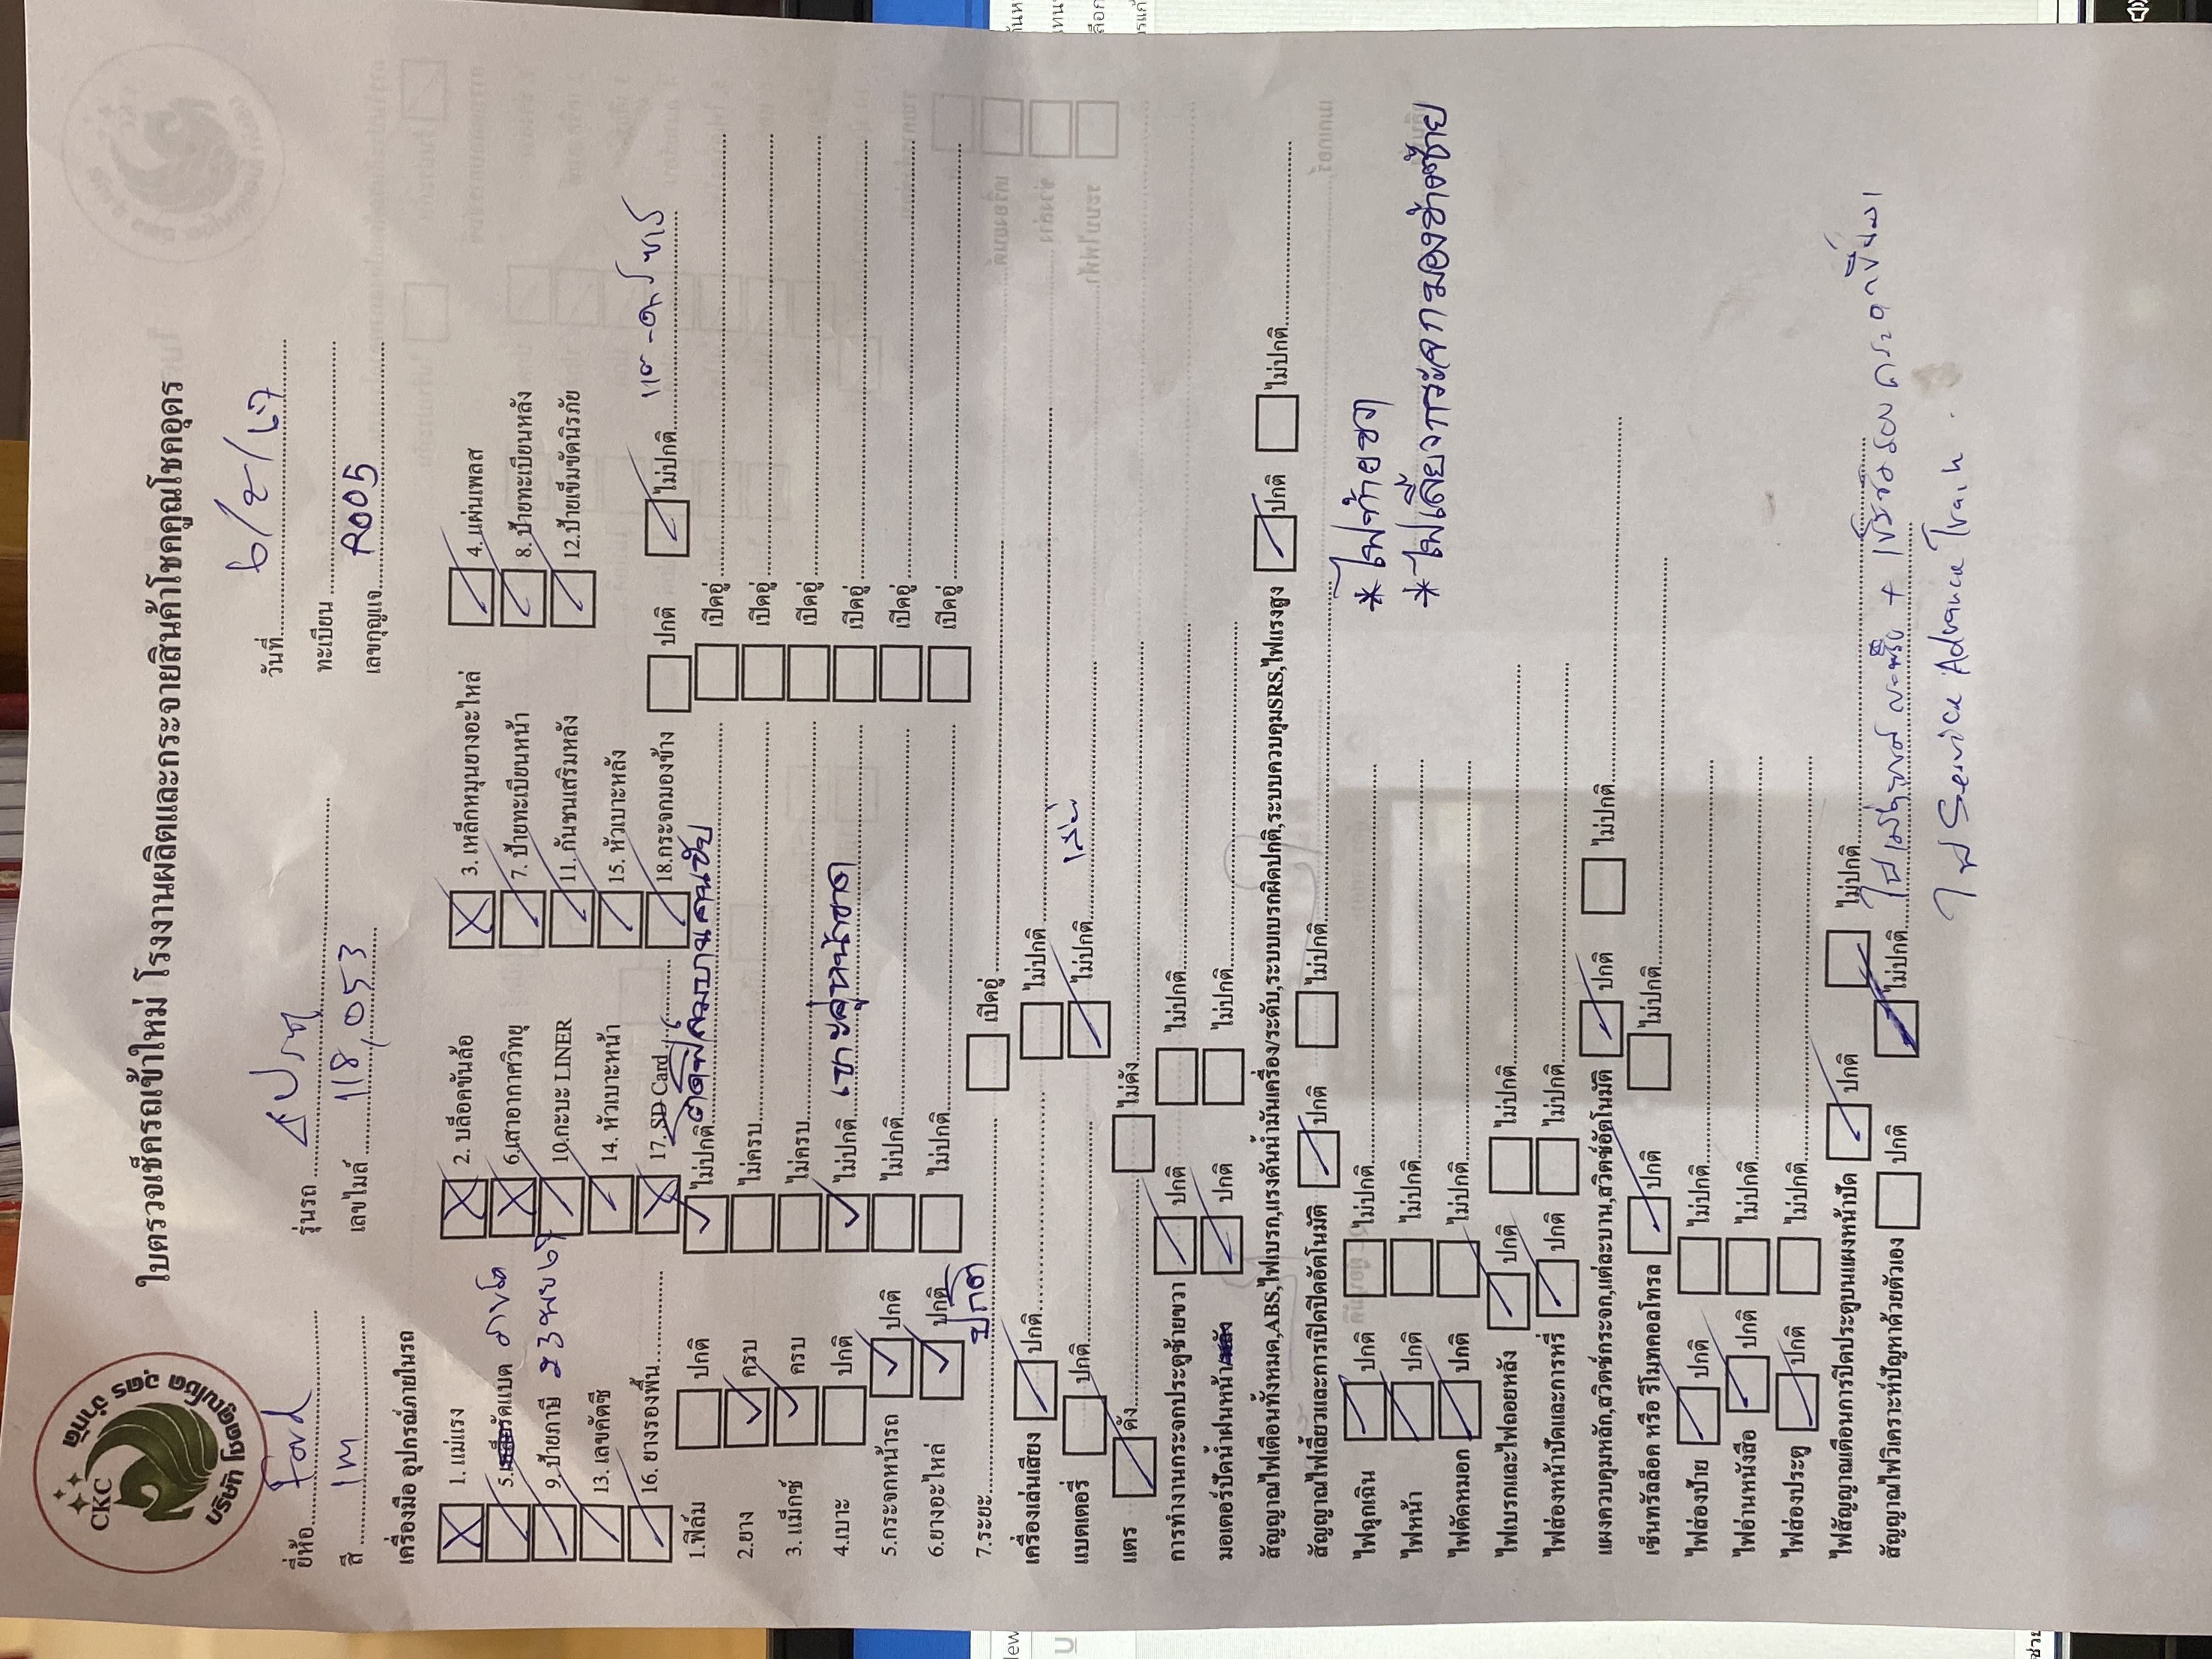 CKC
บริษัท โชคคูณโชค อุดร จำกัด
ใบตรวจเช็ครถเข้าใหม่ โรงงานผลิตและกระจายสินค้าโชคคูณโชคอุดร
วันที่ 6/2/67
ยี่ห้อ Ford รุ่นรถ 4 ประตู ทะเบียน
สี เทา เลขไมล์ 118,053 เลขกุญแจ R005
เครื่องมือ อุปกรณ์ภายในรถ
1. แม่แรง 2. บล็อคขันล้อ 3. เหล็กหมุนยางอะไหล่ 4. แผ่นเพลส
5. รัดแบต 6. เสาอากาศวิทยุ 7. ป้ายทะเบียนหน้า 8. ป้ายทะเบียนหลัง
9. ป้ายภาษี 23 พย 67 10. กะบะ LINER 11. กันชนเสริมหลัง 12. ป้ายเข็มขัดนิรภัย
13. เลขคัตซี 14. หัวเบาะหน้า 15. หัวเบาะหลัง
16. ยางรองพื้น 17. SD Card 18. กระจกมองข้าง ปกติ ไม่ปกติ
1. ฟิล์ม ปกติ ไม่ปกติ ติดฟิล์มบานคนขับ เปิดอู่
2. ยาง ครบ ไม่ครบ เปิดอู่
3. แม็กซ์ ครบ ไม่ครบ เปิดอู่
4. เบาะ ปกติ ไม่ปกติ เบาะคู่หน้าขาด เปิดอู่
5. กระจกหน้ารถ ปกติ ไม่ปกติ เปิดอู่
6. ยางอะไหล่ ปกติ ไม่ปกติ เปิดอู่
7. ระยะ ปกติ เปิดอู่
เครื่องเล่นเสียง ปกติ ไม่ปกติ
แบตเตอรี่ ปกติ ไม่ปกติ เสื่อม
แตร ดัง ไม่ดัง
การทำงานกระจกประตูซ้ายขวา ปกติ ไม่ปกติ
มอเตอร์ปัดน้ำฝนหน้า ปกติ ไม่ปกติ
สัญญาณไฟเตือนทั้งหมด,ABS,ไฟเบรก,แรงดันน้ำมันเครื่อง/ระดับ,ระบบเบรกผิดปกติ,ระบบควบคุมSRS,ไฟแรงสูง ปกติ ไม่ปกติ
สัญญาณไฟเลี้ยวและการเปิดปิดอัตโนมัติ ปกติ ไม่ปกติ
ไฟฉุกเฉิน ปกติ ไม่ปกติ *ไฟท้ายขวา
ไฟหน้า ปกติ ไม่ปกติ *ไฟเลี้ยวกระจกมองข้างซ้าย
ไฟตัดหมอก ปกติ ไม่ปกติ
ไฟเบรกและไฟถอยหลัง ปกติ ไม่ปกติ
ไฟส่องหน้าปัดและการหรี่ ปกติ ไม่ปกติ
แผงควบคุมหลัก,สวิตช์กระจก,แต่ละบาน,สวิตช์อัตโนมัติ ปกติ ไม่ปกติ
เซ็นทรัลล็อค หรือ รีโมทคอลโทรล ปกติ ไม่ปกติ
ไฟส่องป้าย ปกติ ไม่ปกติ
ไฟอ่านหนังสือ ปกติ ไม่ปกติ
ไฟส่องประตู ปกติ ไม่ปกติ
ไฟสัญญาณเตือนการปิดประตูบนแผงหน้าปัด ปกติ ไม่ปกติ
สัญญาณไฟวิเคราะห์ปัญหาด้วยตัวเอง ปกติ ไม่ปกติ
ไฟ Service Advance Train